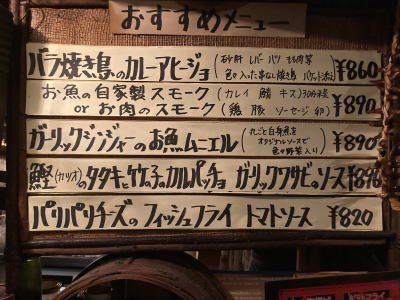 おすすめメニュー
バラ焼き鳥のカレーアヒージョ (砂肝 レバー ハツ もも肉等 ¥860
色々入った串なし焼き鳥 バケット添え)
お魚の自家製スモーク (カレイ 鯖 キス)
or お肉のスモーク (鶏 豚 ソーセージ 卵) ¥890
ガーリックジンジャーのお魚ムニエル (丸ごと白身魚を ¥890
オリジナルソースで
色々野菜入り)
鰹(カツオ)のタタキと竹の子のカルパッチョ ガーリックワサビのソース ¥890
パリパリチーズのフィッシュフライ トマトソース ¥820